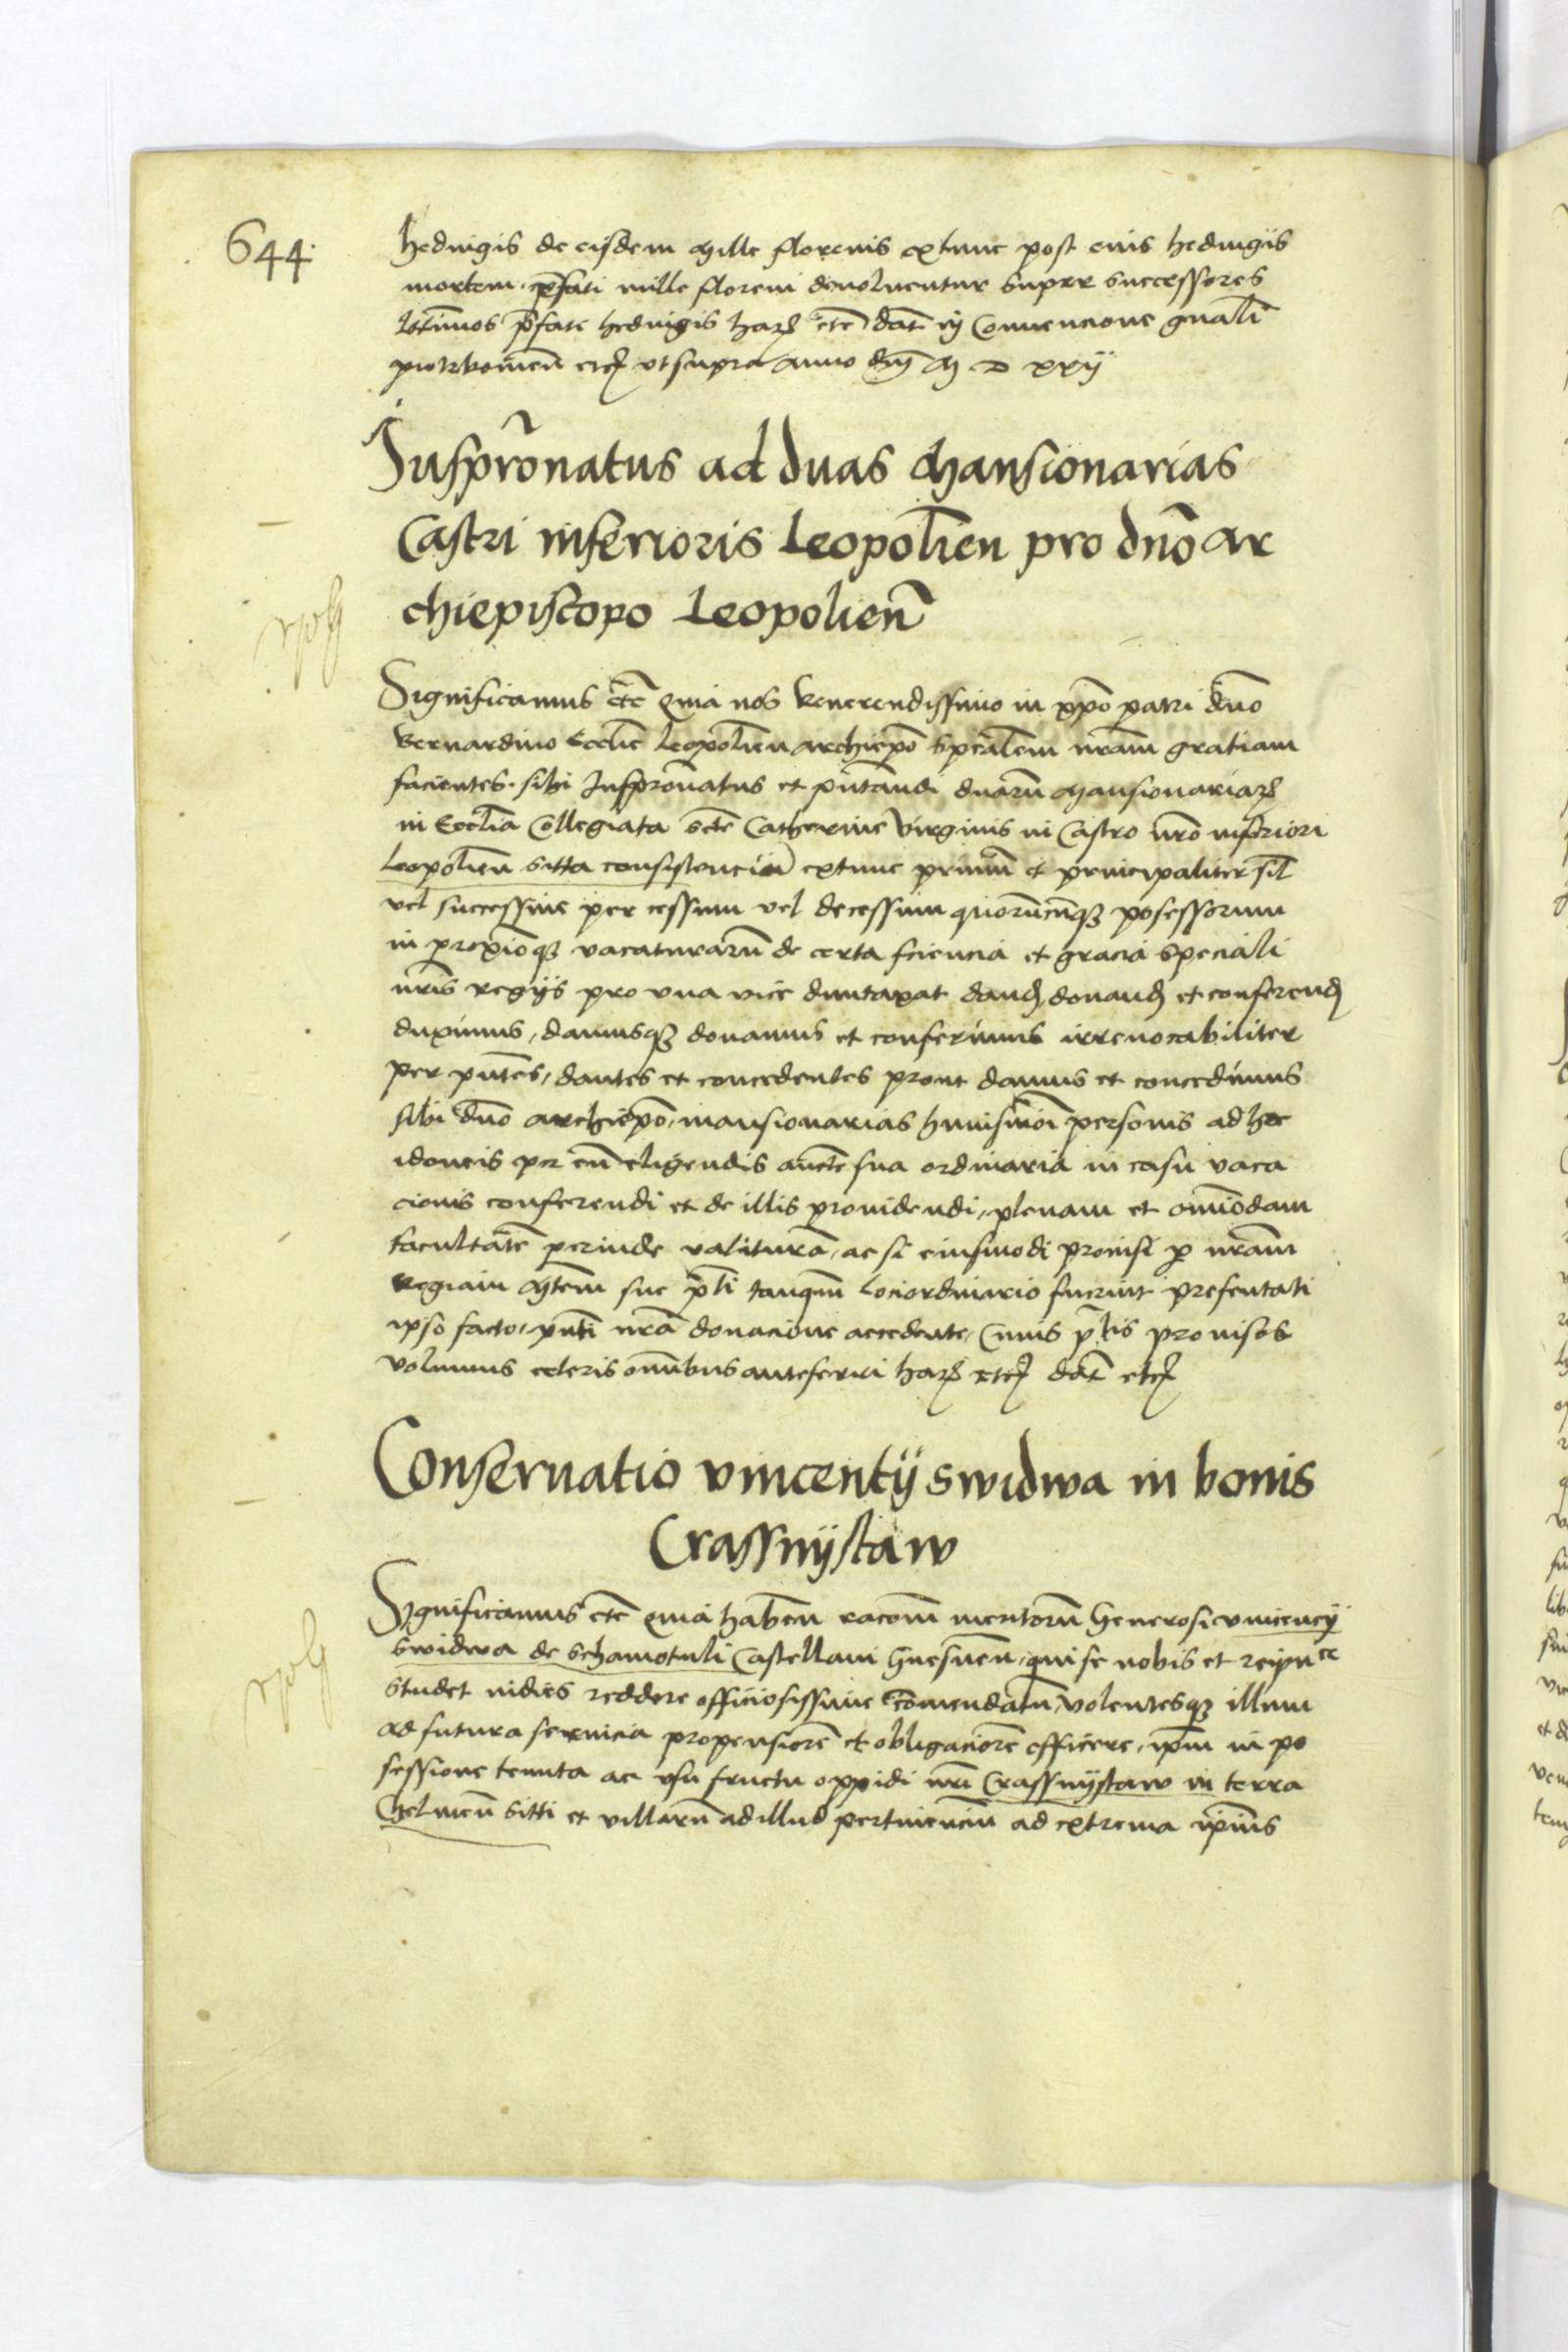 644.
hedvigis de eisdem Mille florenis extunc post eius hedvigis
mortem, p̄fati mille floreni devoluentur super successores
lt̄timos p̄fate hedvigis harz etc̄ dat̄ in Conuencione gn̄ali
piotrkowien̄ etcz vt supra Anno dnī M D xxij
Juspr̄onatus ad duas Mansionarias
Castri inferioris Leopol̄ien pro dn̄o ar
chiepiscopo Leopolien̄
Significamus etc̄ Quia nos Reuerendissimo in xp̄o patri dn̄o
Bernardino Eccl̄ie Leopolien̄ archiep̄o sp̄ealem nr̄am gratiam
facientes. sibi Juspronatus et pn̄tandi duarū Mansionariarz
in Eccl̄ia Collegiata sct̄e Catherine Virginis in Castro nr̄o inferiori
Leopolien̄ sitta consistenciū extunc primū et principaliter sil̄
vel successiue per cessum vel decessum quorūcūqz possessorum
in proxīoqz vacaturarū de certa sciencia et gracia speciali
nr̄is regijs pro vna vice duntaxat dand donand et conferend
duximus, damusqz donamus et conferimus irreuocabiliter
per pn̄tes, dantes et concedentes prout damus et concedimus
sibi dn̄o archiep̄o, mansionarias huiusmōi personis ad hec
idoneis per eū eligendis auct̄e sua ordinaria in casu vaca
cionis conferendi et de illis prouidendi, plenam et omīodam
facultatē perinde valiturā, ac si eiusmodi prouisi p nr̄am
Regiam Mtem sue p̄ti tanqm̄ loci ordinario fuerint presentati
ipso facto, pn̄ti nr̄a donacione accedente, Cuius p̄tis prouisos
volumus ceteris omībus anteferri harz etcz dat̄ etcz
Conseruatio vincentij swidwa in bonis
Crassnijstaw
Significamus etc̄ Quia haben̄ racōm meritorū Generosi vincencij
swidwa de schamotuli Castellani Gnesnen̄, qui se nobis et reipuce
studet indies reddere officiosissime cōmendatū, volentesqz illum
ad futura seruicia propensiorē et obligaciorē efficere, ip̄m in po
sessione tenuta ac vsu fructu oppidi nr̄i Crassnijstaw in terra
Chelmen̄ sitti et villarū ad illud pertinenciū ad extrema ip̄ius